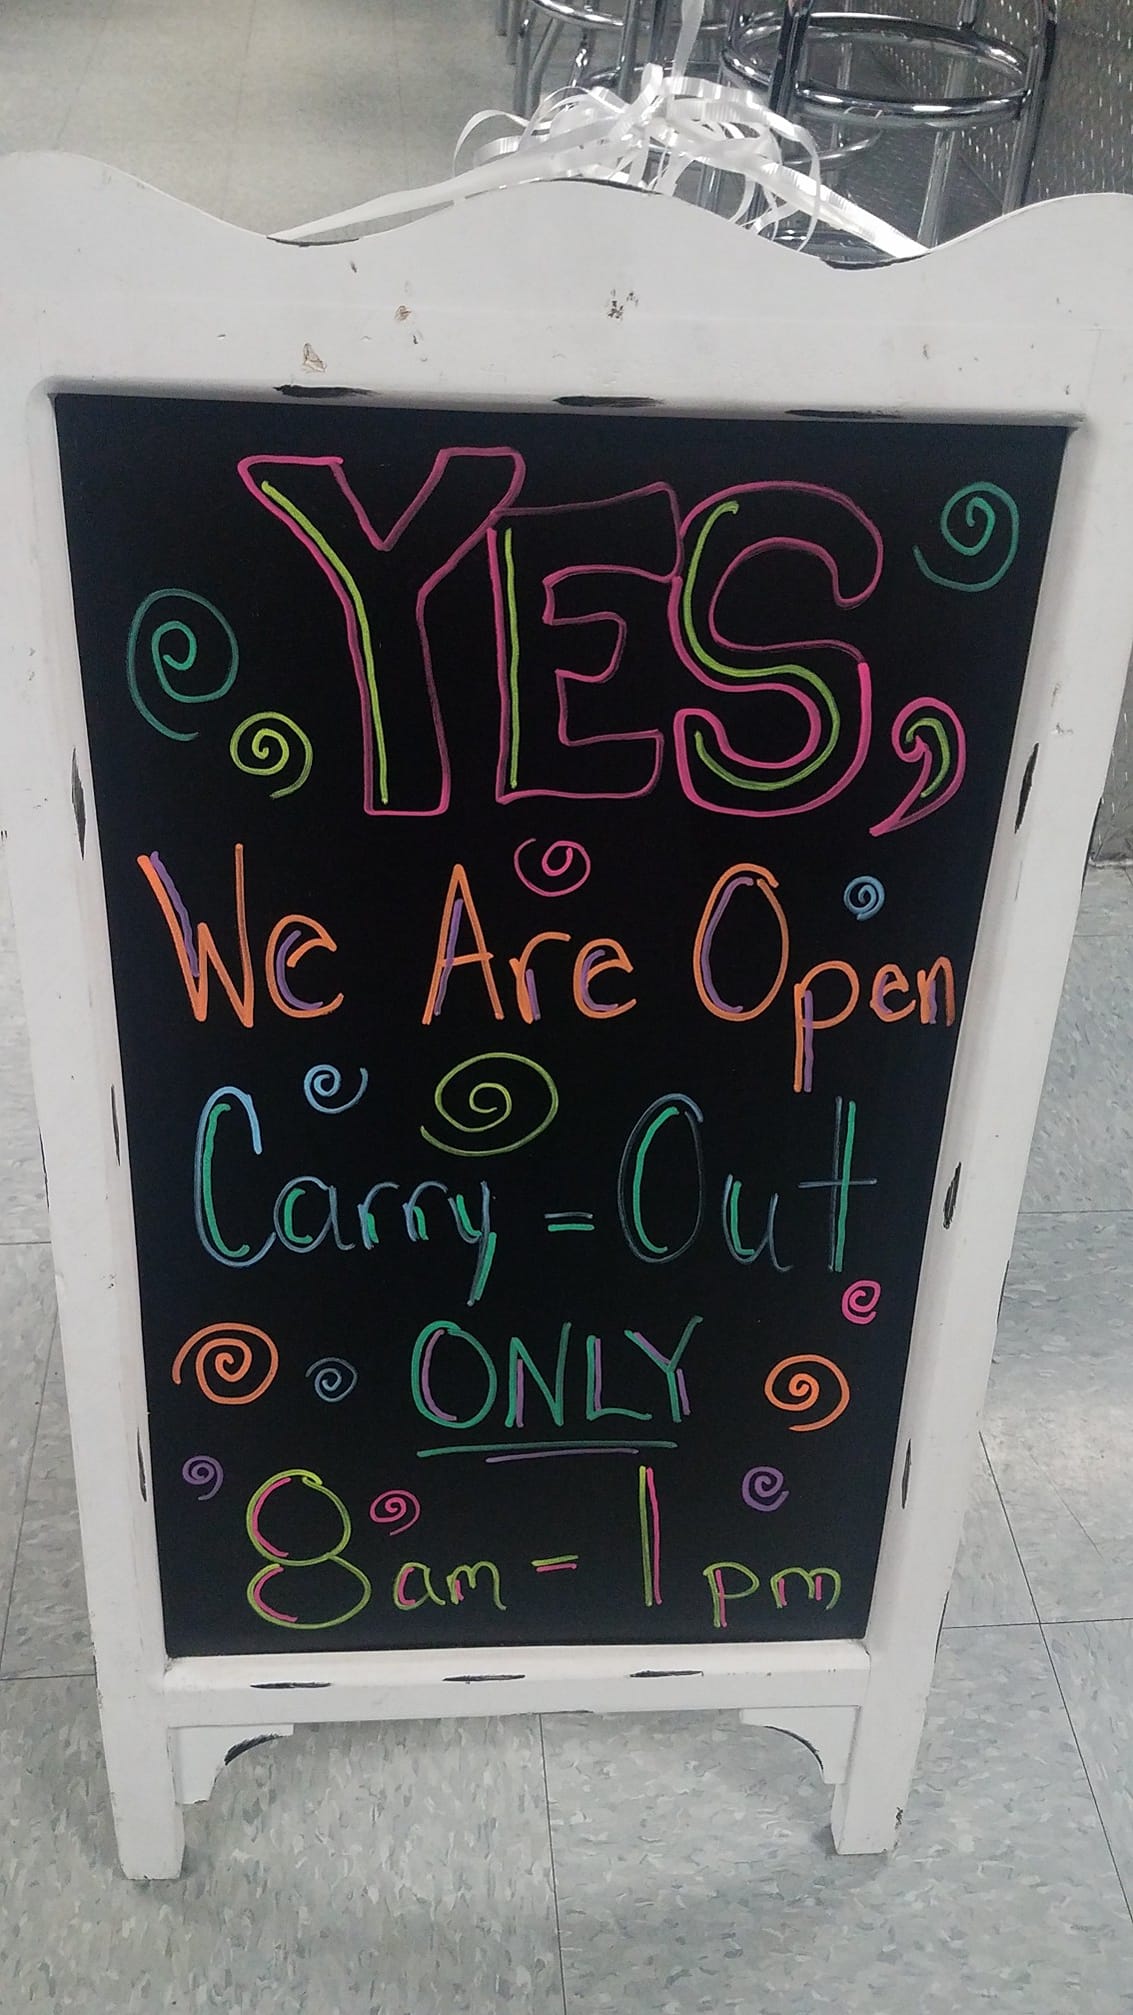 YES,
We Are Open
Carry=Out
ONLY
8am=1pm